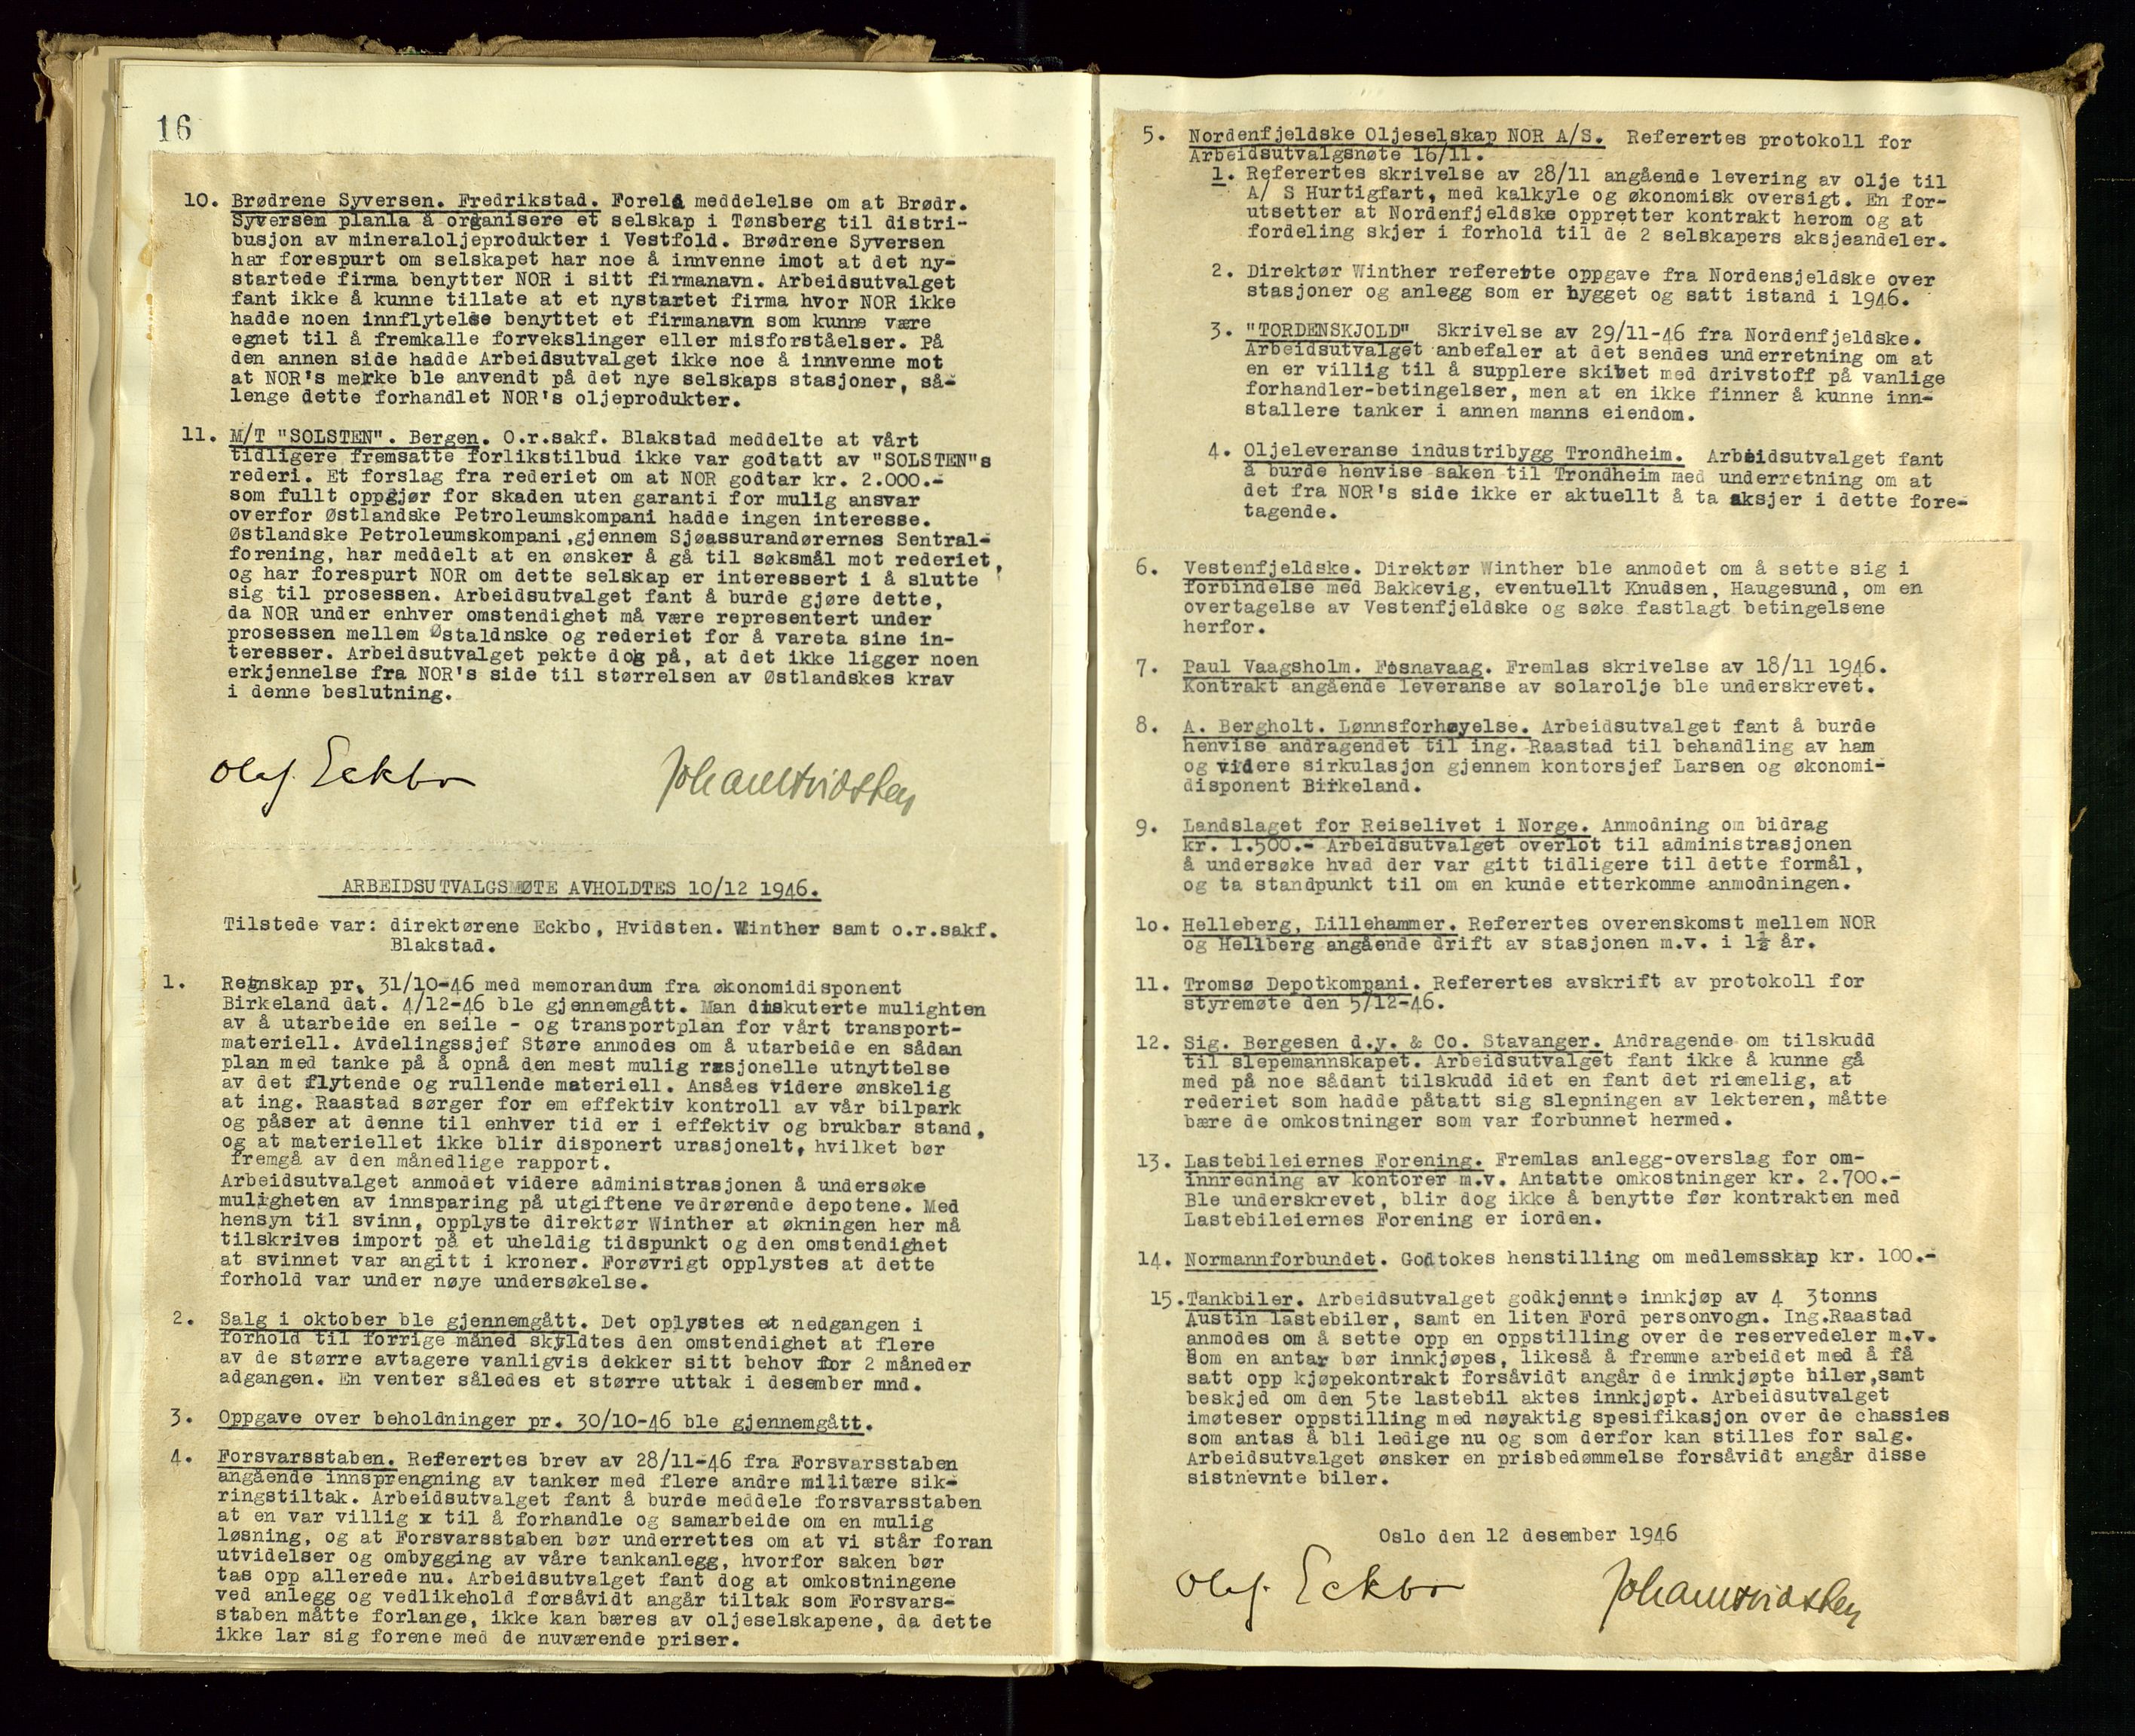 16
10. Brødrene Syversen. Fredrikstad. Forelå meddelelse om at Brødr.
Syversen planla å organisere et selskap i Tønsberg til distri-
busjon av mineraloljeprodukter i Vestfold. Brødrene Syversen
har forespurt om selskapet har noe å innvenne imot at det ny-
startede firma benytter NOR i sitt firmanavn. Arbeidsutvalget
fant ikke å kunne tillate at et nystartet firma hvor NOR ikke
hadde noen innflytelse benyttet et firmanavn som kunne være
egnet til å fremkalle forvekslinger eller misforståelser. På
den annen side hadde Arbeidsutvalget ikke noe å innvenne mot
at NOR's merke ble anvendt på det nye selskaps stasjoner, så-
lenge dette forhandlet NOR's oljeprodukter.
11. M/T "SOLSTEN". Bergen. O.r.sakf. Blakstad meddelte at vårt
tidligere fremsatte forlikstilbud ikke var godtatt av "SOLSTEN"s
rederi. Et forslag fra rederiet om at NOR godtar kr. 2.000.-
som fullt oppgjør for skaden uten garanti for mulig ansvar
overfor Østlandske Petroleumskompani hadde ingen interesse.
Østlandske Petroleumskompani,gjennem Sjøassurandørernes Sentral-
forening, har meddelt at en ønsker å gå til søksmål mot rederiet,
og har forespurt NOR om dette selskap er interessert i å slutte
sig til prosessen. Arbeidsutvalget fant å burde gjøre dette,
da NOR under enhver omstendighet må være representert under
prosessen mellem Østaldnske og rederiet for å vareta sine in-
teresser. Arbeidsutvalget pekte dog på, at det ikke ligger noen
erkjennelse fra NOR's side til størrelsen av Østlandskes krav
i denne beslutning.
Olaf. Eckbo Johan Hvidsten
ARBEIDSUTVALGSMØTE AVHOLDTES 10/12 1946.
Tilstede var: direktørene Eckbo, Hvidsten. Winther samt o.r.sakf.
Blakstad.
1. Regnskap pr. 31/10-46 med memorandum fra økonomidisponent
Birkeland dat. 4/12-46 ble gjennemgått. Man diskuterte mulighten
av å utarbeide en seile - og transportplan for vårt transport-
materiell. Avdelingssjef Støre anmodes om å utarbeide en sådan
plan med tanke på å opnå den mest mulig rasjonelle utnyttelse
av det flytende og rullende materiell. Ansåes videre ønskelig
at ing. Raastad sørger for em effektiv kontroll av vår bilpark
og påser at denne til enhver tid er i effektiv og brukbar stand,
og at materiellet ikke blir disponert urasjonelt, hvilket bør
fremgå av den månedlige rapport.
Arbeidsutvalget anmodet videre administrasjonen å undersøke
muligheten av innsparing på utgiftene vedrørende depotene. Med
hensyn til svinn, opplyste direktør Winther at økningen her må
tilskrives import på et uheldig tidspunkt og den omstendighet
at svinnet var angitt i kroner. Forøvrigt opplystes at dette
forhold var under nøye undersøkelse.
2. Salg i oktober ble gjennemgått. Det oplystes at nedgangen i
forhold til forrige måned skyldtes den omstendighet at flere
av de større avtagere vanligvis dekker sitt behov for 2 måneder
adgangen. En venter således et større uttak i desember mnd.
3. Oppgave over beholdninger pr. 30/10-46 ble gjennemgått.
4. Forsvarsstaben. Referertes brev av 28/11-46 fra Forsvarsstaben
angående innsprengning av tanker med flere andre militære sik-
ringstiltak. Arbeidsutvalget fant å burde meddele forsvarsstaben
at en var villig x til å forhandle og samarbeide om en mulig
løsning, og at Forsvarsstaben bør underrettes om at vi står foran
utvidelser og ombygging av våre tankanlegg, hvorfor saken bør
tas opp allerede nu. Arbeidsutvalget fant dog at omkostningene
ved anlegg og vedlikehold forsåvidt angår tiltak som Forsvars-
staben måtte forlange, ikke kan bæres av oljeselskapene, da dette
ikke lar sig forene med de nuværende priser.
5. Nordenfjeldske Oljeselskap NOR A/S. Referertes protokoll for
Arbeidsutvalgsnøte 16/11.
1. Referertes skrivelse av 28/11 angående levering av olje til
A/ S Hurtigfart, med kalkyle og økonomisk oversigt. En for-
utsetter at Nordenfjeldske oppretter kontrakt herom og at
fordeling skjer i forhold til de 2 selskapers aksjeandeler.
2. Direktør Winther refererte oppgave fra Nordensjeldske over
stasjoner og anlegg som er bygget og satt istand i 1946.
3. "TORDENSKJOLD" Skrivelse av 29/11-46 fra Nordenfjeldske.
Arbeidsutvalget anbefaler at det sendes underretning om at
en er villig til å supplere skibet med drivstoff på vanlige
forhandler-betingelser, men at en ikke finner å kunne inn-
stallere tanker i annen manns eiendom.
4. Oljeleveranse industribygg Trondheim. Arbeidsutvalget fant
å burde henvise saken til Trondheim med underretning om at
det fra NOR's side ikke er aktuellt å ta aksjer i dette fore-
tagende.
6. Vestenfjeldske. Direktør Winther ble anmodet om å sette sig i
forbindelse med Bakkevig, eventuellt Knudsen, Haugesund, om en
overtagelse av Vestenfjeldske og søke fastlagt betingelsene
herfor.
7. Paul Vaagsholm. Fosnavaag. Fremlas skrivelse av 18/11 1946.
Kontrakt angående leveranse av solarolje ble underskrevet.
8. A. Bergholt. Lønnsforhøyelse. Arbeidsutvalget fant å burde
henvise andragendet til ing. Raastad til behandling av ham
og videre sirkulasjon gjennem kontorsjef Larsen og økonomi-
disponent Birkeland.
9. Landslaget for Reiselivet i Norge. Anmodning om bidrag
kr. 1.500.- Arbeidsutvalget overlot til administrasjonen
å undersøke hvad der var gitt tidligere til dette formål,
og ta standpunkt til om en kunde etterkomme anmodningen.
10. Helleberg, Lillehammer. Referertes overenskomst mellem NOR
og Hellberg angående drift av stasjonen m.v. i 1½ år.
11. Tromsø Depotkompani. Referertes avskrift av protokoll for
styremøte den 5/12-46.
12. Sig. Bergesen d.y. & Co. Stavanger. Andragende om tilskudd
til slepemannskapet. Arbeidsutvalget fant ikke å kunne gå
med på noe sådant tilskudd idet en fant det riemelig, at
rederiet som hadde påtatt sig slepningen av lekteren, måtte
bære de omkostninger som var forbunnet hermed.
13. Lastebileiernes Forening. Fremlas anlegg-overslag for om-
innredning av kontorer m.v. Antatte omkostninger kr. 2.700.-
Ble underskrevet, blir dog ikke å benytte før kontrakten med
Lastebileiernes Forening er iorden.
14. Normannforbundet. Godtokes henstilling om medlemsskap kr. 100.-
15. Tankbiler. Arbeidsutvalget godkjennte innkjøp av 4 3tonns
Austin lastebiler, samt en liten Ford personvogn. Ing.Raastad
anmodes om å sette opp en oppstilling over de reservedeler m.v.
som en antar bør innkjøpes, likeså å fremme arbeidet med å få
satt opp kjøpekontrakt forsåvidt angår de innkjøpte biler,samt
beskjed om den 5te lastebil aktes innkjøpt. Arbeidsutvalget
imøteser oppstilling med nøyaktig spesifikasjon over de chassies
som antas å bli ledige nu og som derfor kan stilles for salg.
Arbeidsutvalget ønsker en prisbedømmelse forsåvidt angår disse
sistnevnte biler.
Oslo den 12 desember 1946
Olaf. Eckbo Johan Hvidsten